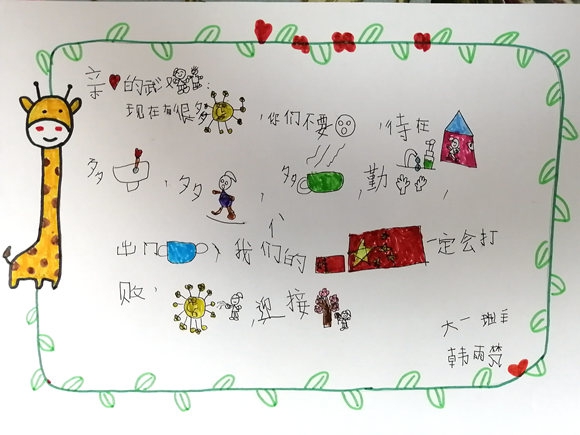 亲的武汉:
现在有很多,你们不要,待在
多,多,多,勤,
出门,我们的一定会打
败,,迎接
大一班
韩雨梦